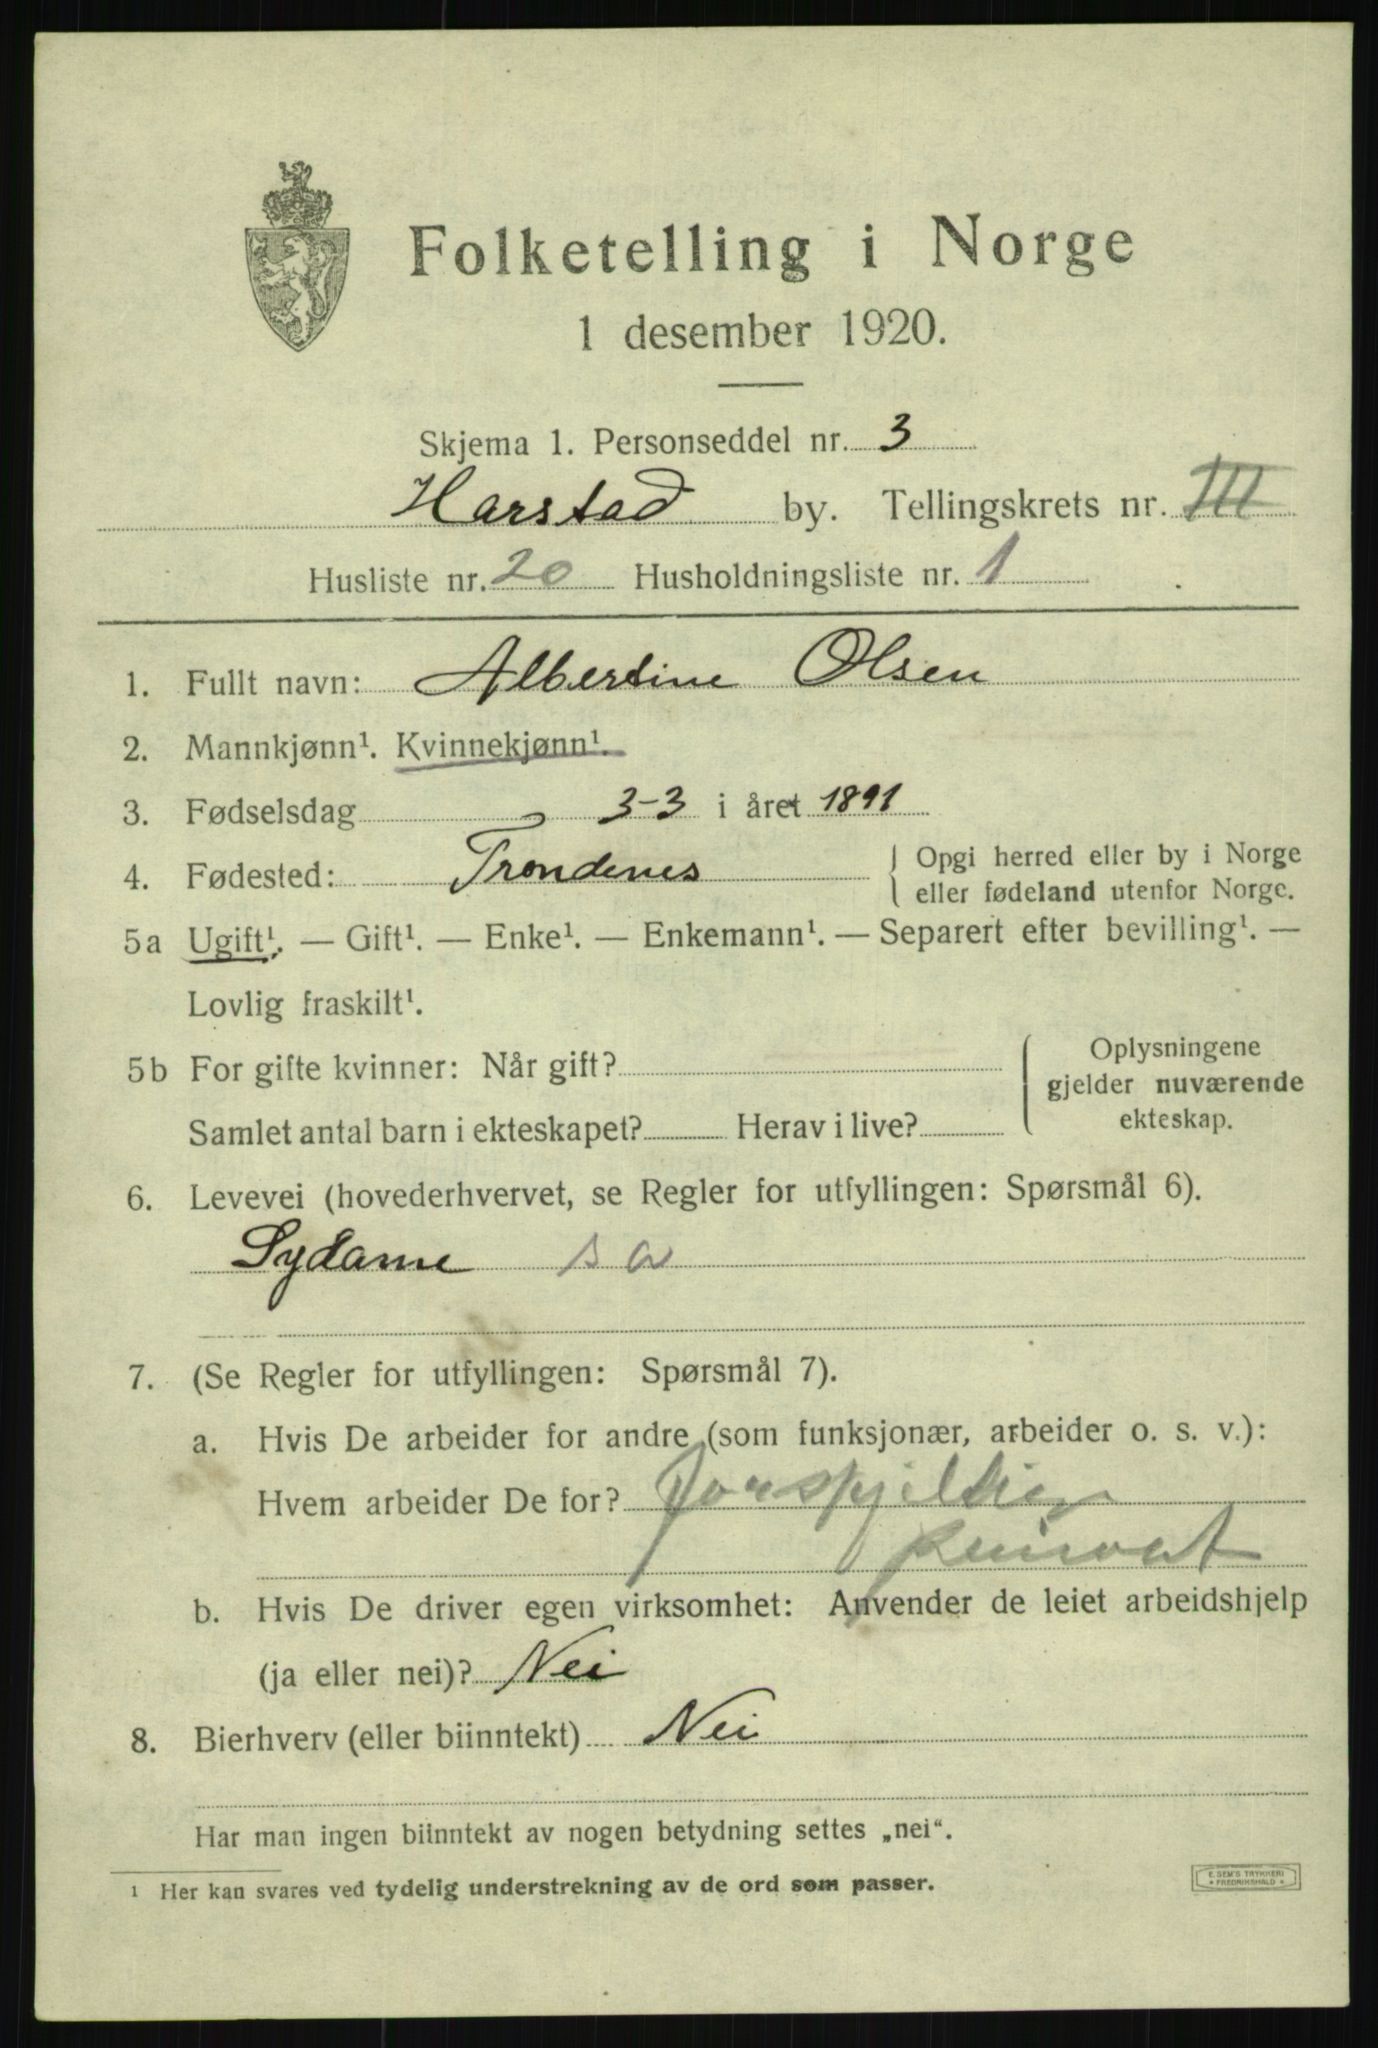 Folketelling i Norge
1 desember 1920.
Skjema 1. Personseddel nr. 3
Harstad by. Tellingskrets nr. III
Husliste nr. 20 Husholdningsliste nr. 1
1. Fullt navn: Albertine Olsen
2. Mannkjønn¹. Kvinnekjønn¹.
3. Fødselsdag 3-3 i året 1891
4. Fødested: Trondenes { Opgi herred eller by i Norge
eller fødeland utenfor Norge.
5a Ugift¹. — Gift¹. — Enke¹. — Enkemann¹. — Separert efter bevilling¹. —
Lovlig fraskilt¹.
5b For gifte kvinner: Når gift?
Samlet antal barn i ekteskapet? Herav i live?
Oplysningene
gjelder nuværende
ekteskap.
6. Levevei (hovederhvervet, se Regler for utfyllingen: Spørsmål 6).
Sydame s a
7. (Se Regler for utfyllingen: Spørsmål 7).
a. Hvis De arbeider for andre (som funksjonær, arbeider o. s. v.):
Hvem arbeider De for? Forskjellig
privat
b. Hvis De driver egen virksomhet: Anvender de leiet arbeidshjelp
(ja eller nei)? Nei
8. Bierhverv (eller biinntekt) Nei
Har man ingen biinntekt av nogen betydning settes „nei“.
1 Her kan svares ved tydelig understrekning av de ord som passer.
E. SEM'S TRYKKERI
FREDRIKSHALD